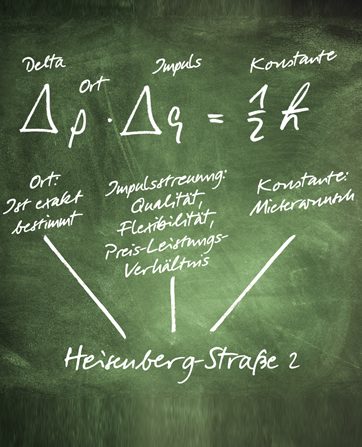 Delta Impuls Konstante
Ort
Δp · Δq = 1/2 ħ
Ort:
Ist exakt
bestimmt
Impulsstreuung:
Qualität,
Flexibilität,
Preis-Leistungs-
Verhältnis
Konstante:
Mieterwunsch
Heisenberg-Straße 2